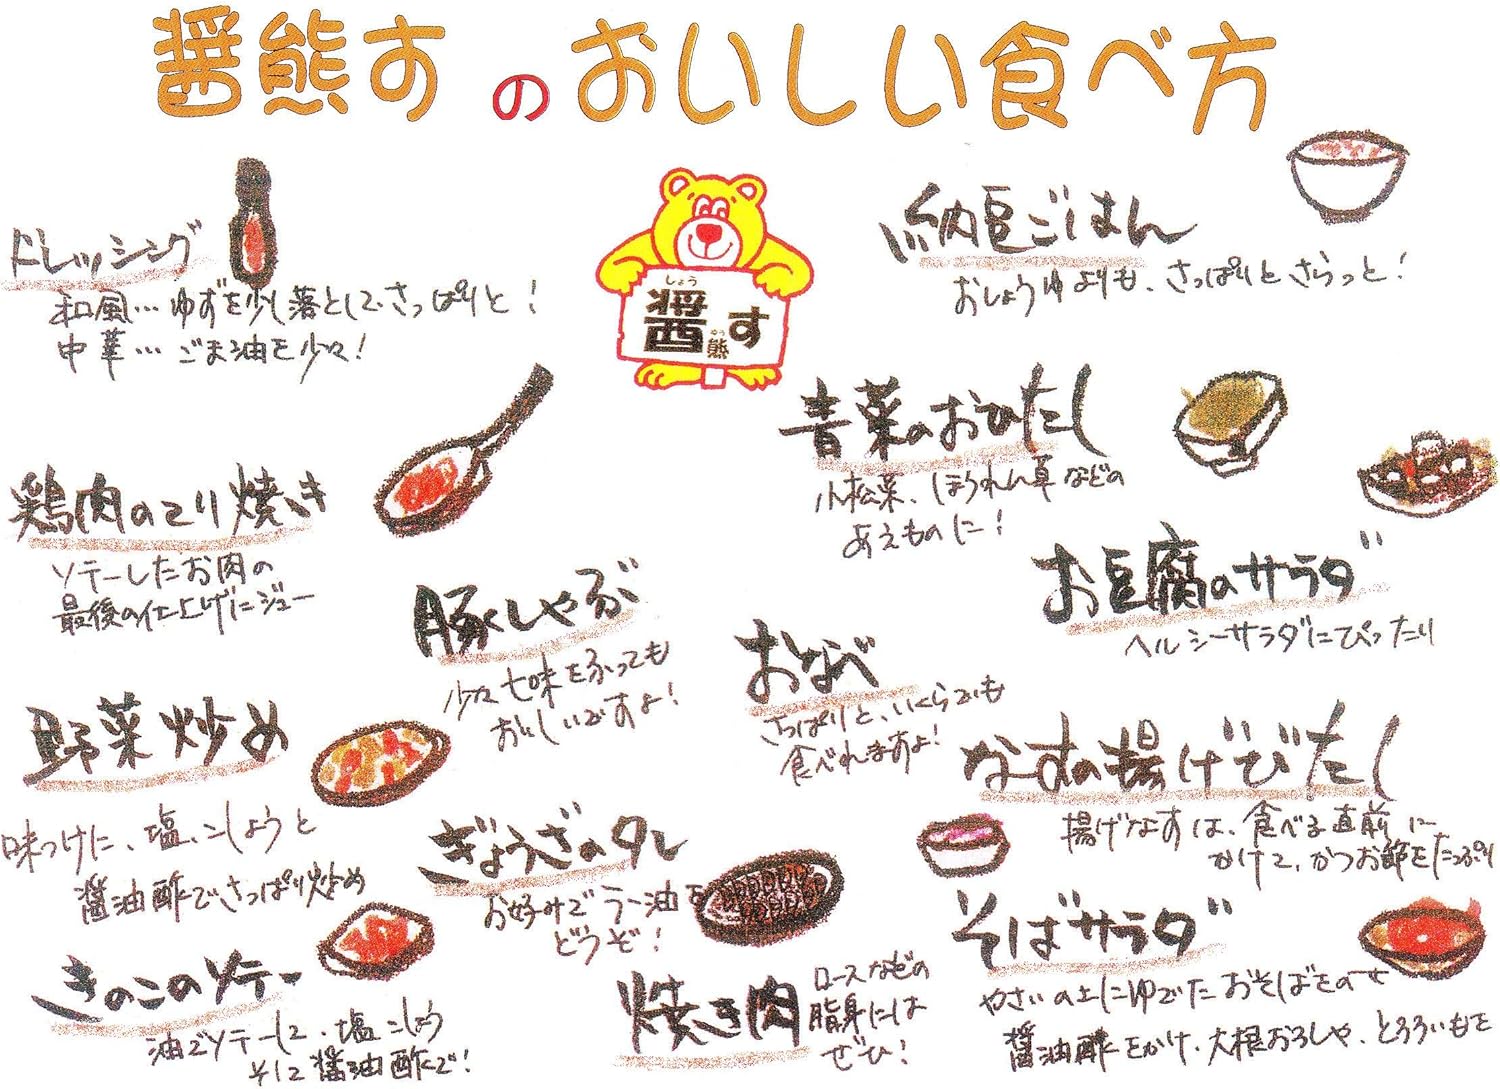 醤熊すのおいしい食べ方
しょう
醤す
ゆう
熊
ドレッシング
和風…ゆずを少し落として、さっぱりと！
中華…ごま油を少々！
納豆ごはん
おしょうゆよりも、さっぱりとさらっと！
青菜のおひたし
小松菜、ほうれん草などの
あえものに！
鶏肉のてり焼き
ソテーしたお肉の
最後の仕上げにジュー
お豆腐のサラダ
ヘルシーサラダにぴったり
豚しゃぶ
少々七味をふっても
おいしいですよ！
おなべ
さっぱりと、いくらでも
食べれますよ！
野菜炒め
味つけに、塩、こしょうと
醤油酢でさっぱり炒め
なすの揚げびたし
揚げなすは、食べる直前に
かけて、かつお節をたっぷり
ぎょうざのタレ
お好みでラー油を
どうぞ！
そばサラダ
やさいの上にゆでたおそばをのせ
醤油酢をかけ、大根おろしや、とろろいもを
きのこのソテー
油でソテーして、塩こしょう
そして醤油酢で！
焼き肉
ロースなどの
脂身には
ぜひ！